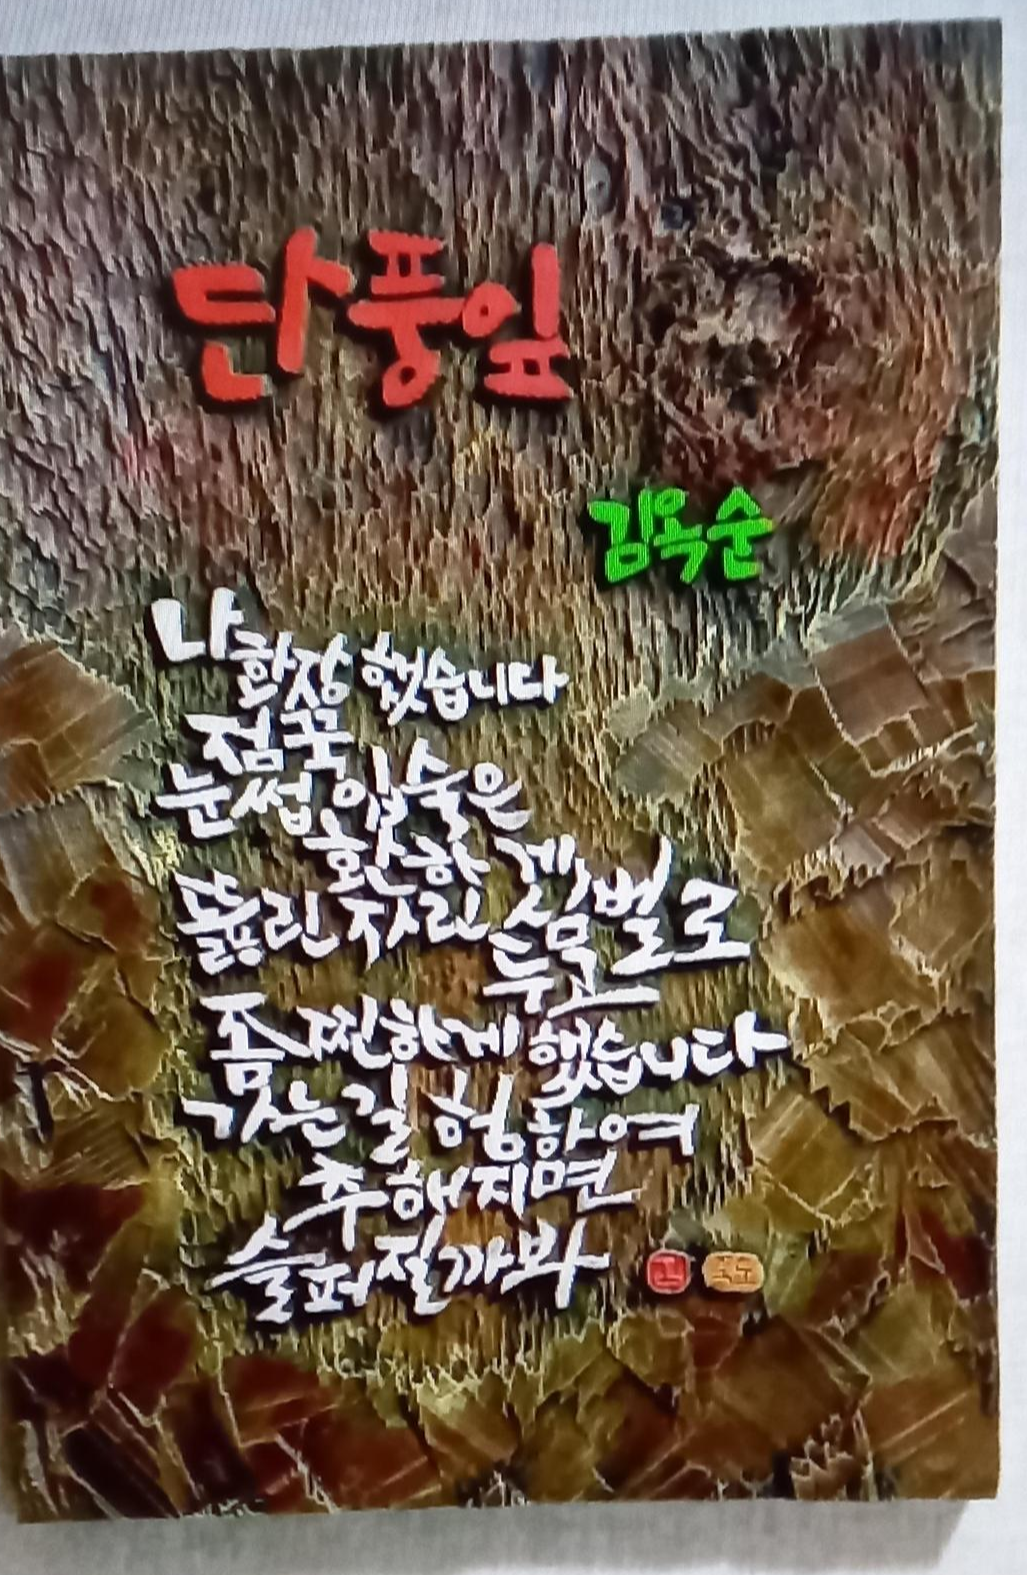 단풍잎
김옥순
나 화장 했습니다
점꾹
눈썹 입술은
환한 게
뚫린 자린 심벌로
두고
좀 찐하게 했습니다
가는 길 험하여
추해지면
슬퍼질까봐